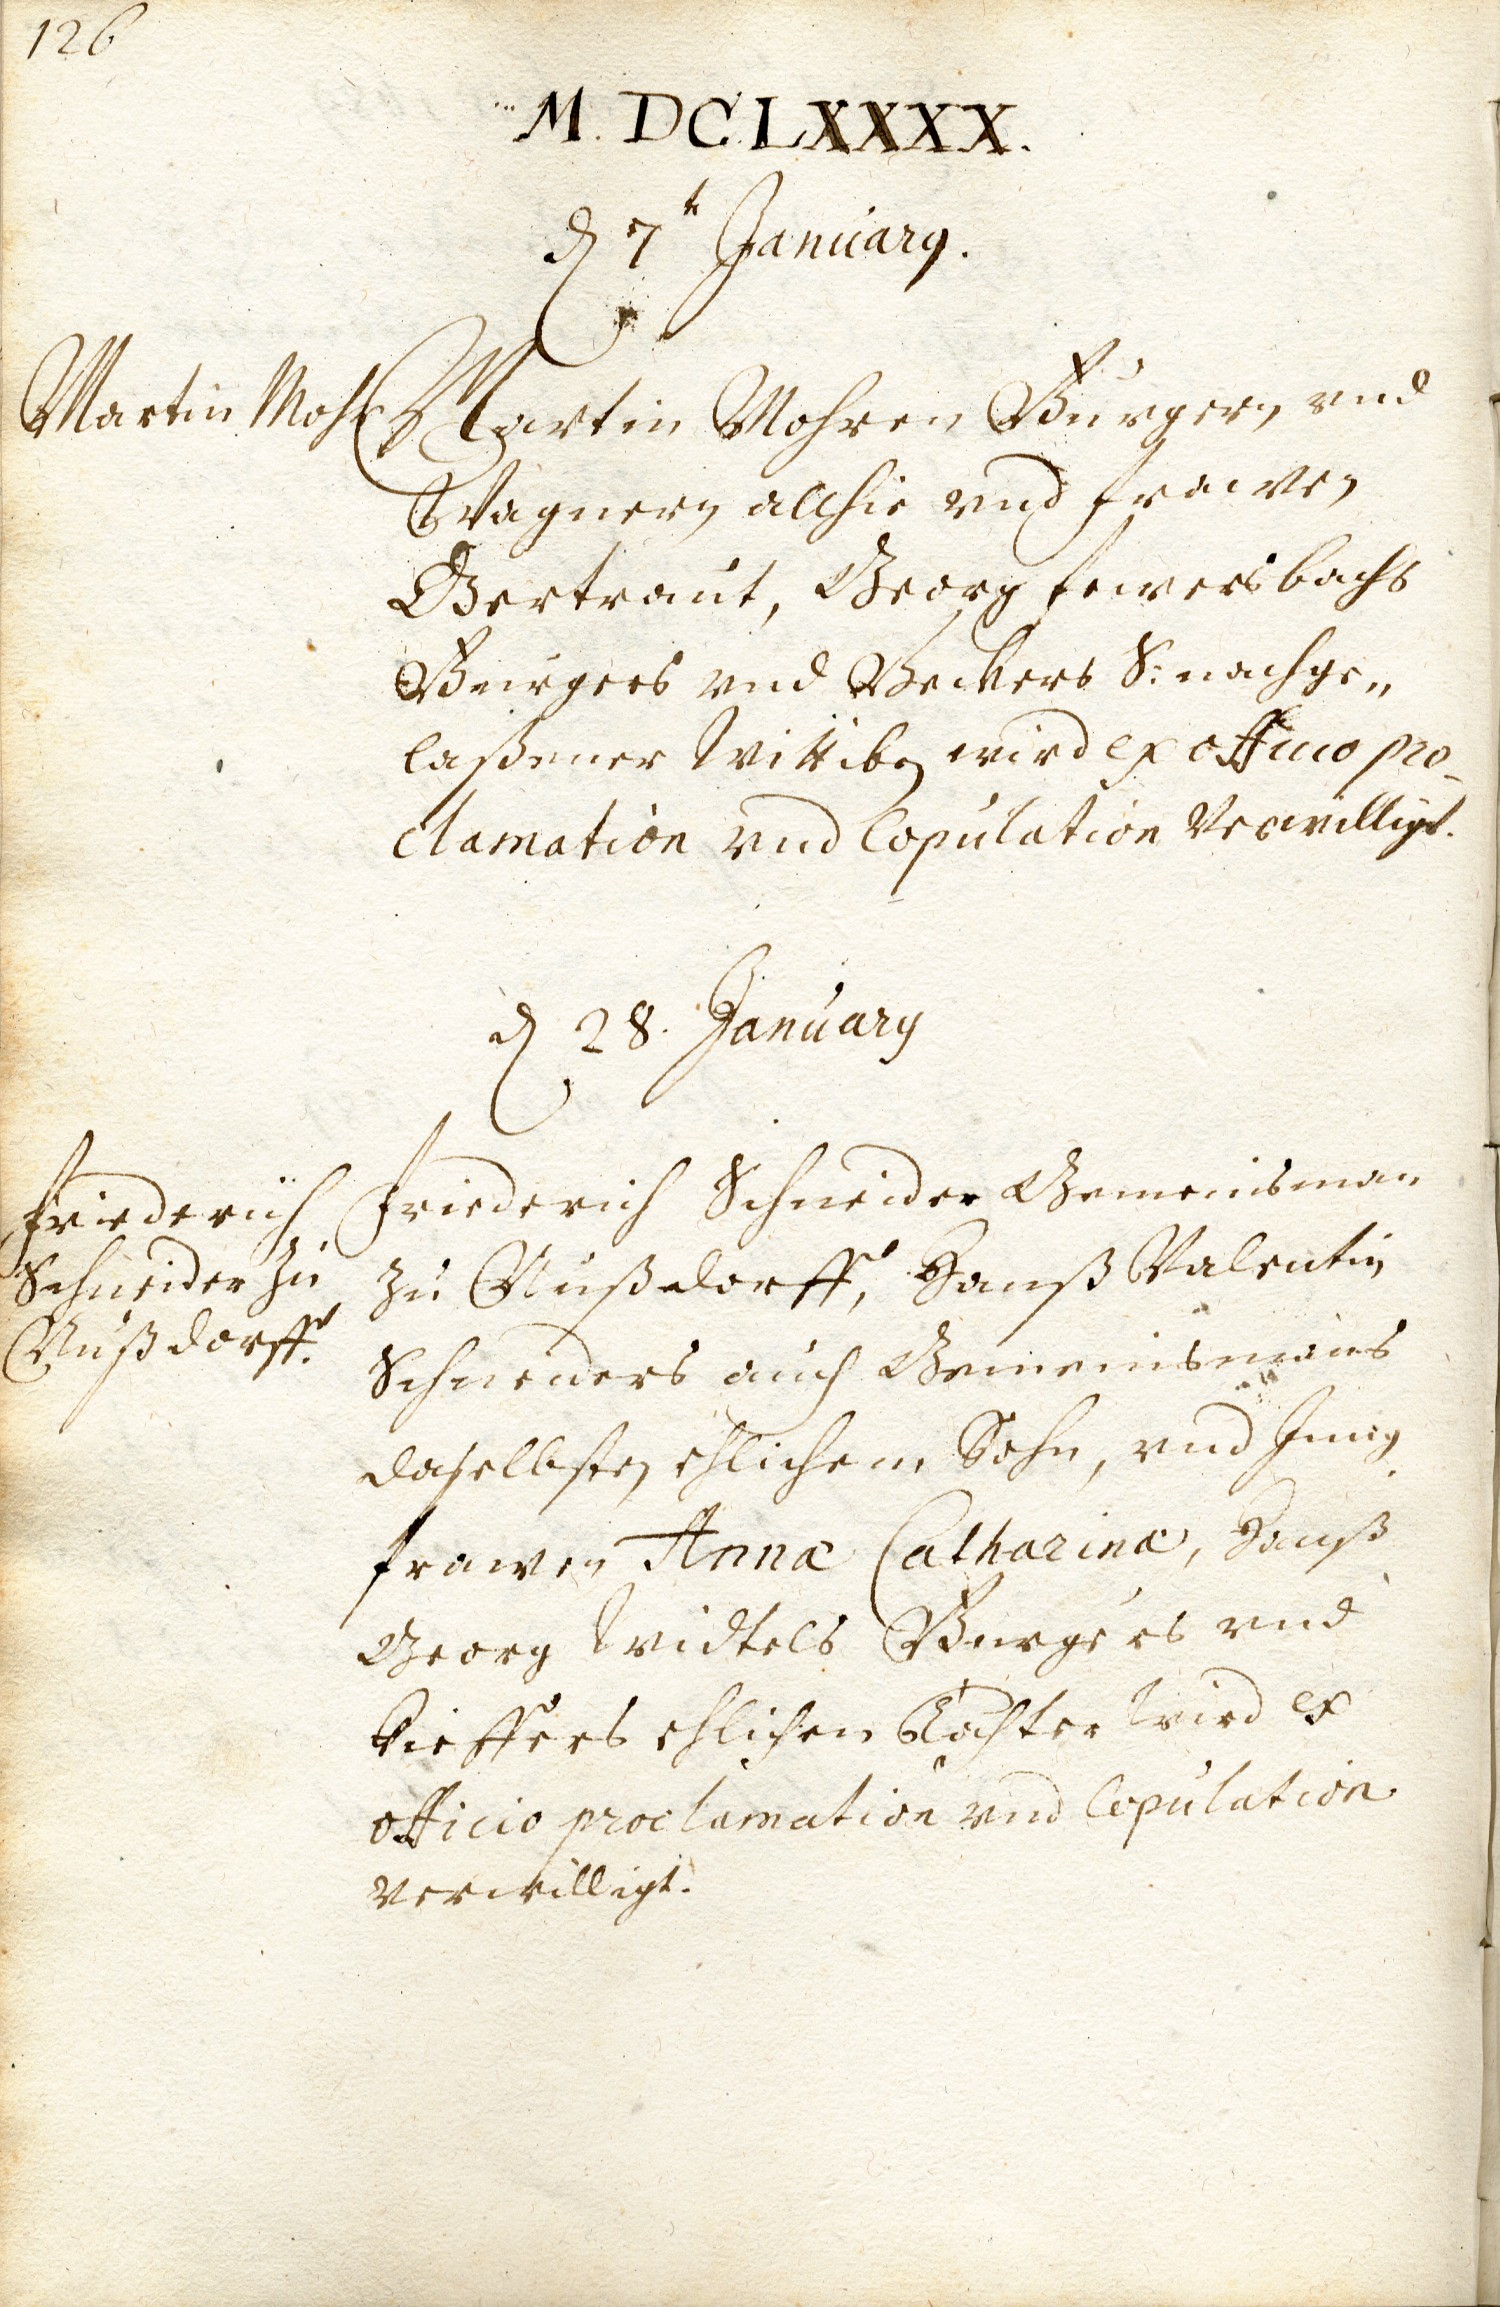 126
M. DC.LXXXX.
d 7t January.
Martin Mohr
Martin Mohren Burgern vnd
Wagnern allhie vnd frawen
Gertraut, Georg fewersbachs
Burgers vnd Beckers S: nachge„
laßener Wittiben wird ex officio pro-
clamation vnd Copulation Verwilligt.
d 28. January
Friederich
Schneider zu
Nußdorff.
Friederich Schneider Gemeinsman
zu Nußdorff, Hanß Valentin
Schneiders auch Gemeinsmans
daselbsten ehlichem Sohn, vnd Jung
frawen Annæ Catharinæ, Hanß
Georg Burgers vnd
Kieffers ehlichen Tochter wird ex
officio proclamation vnd Copulation
verwilligt.